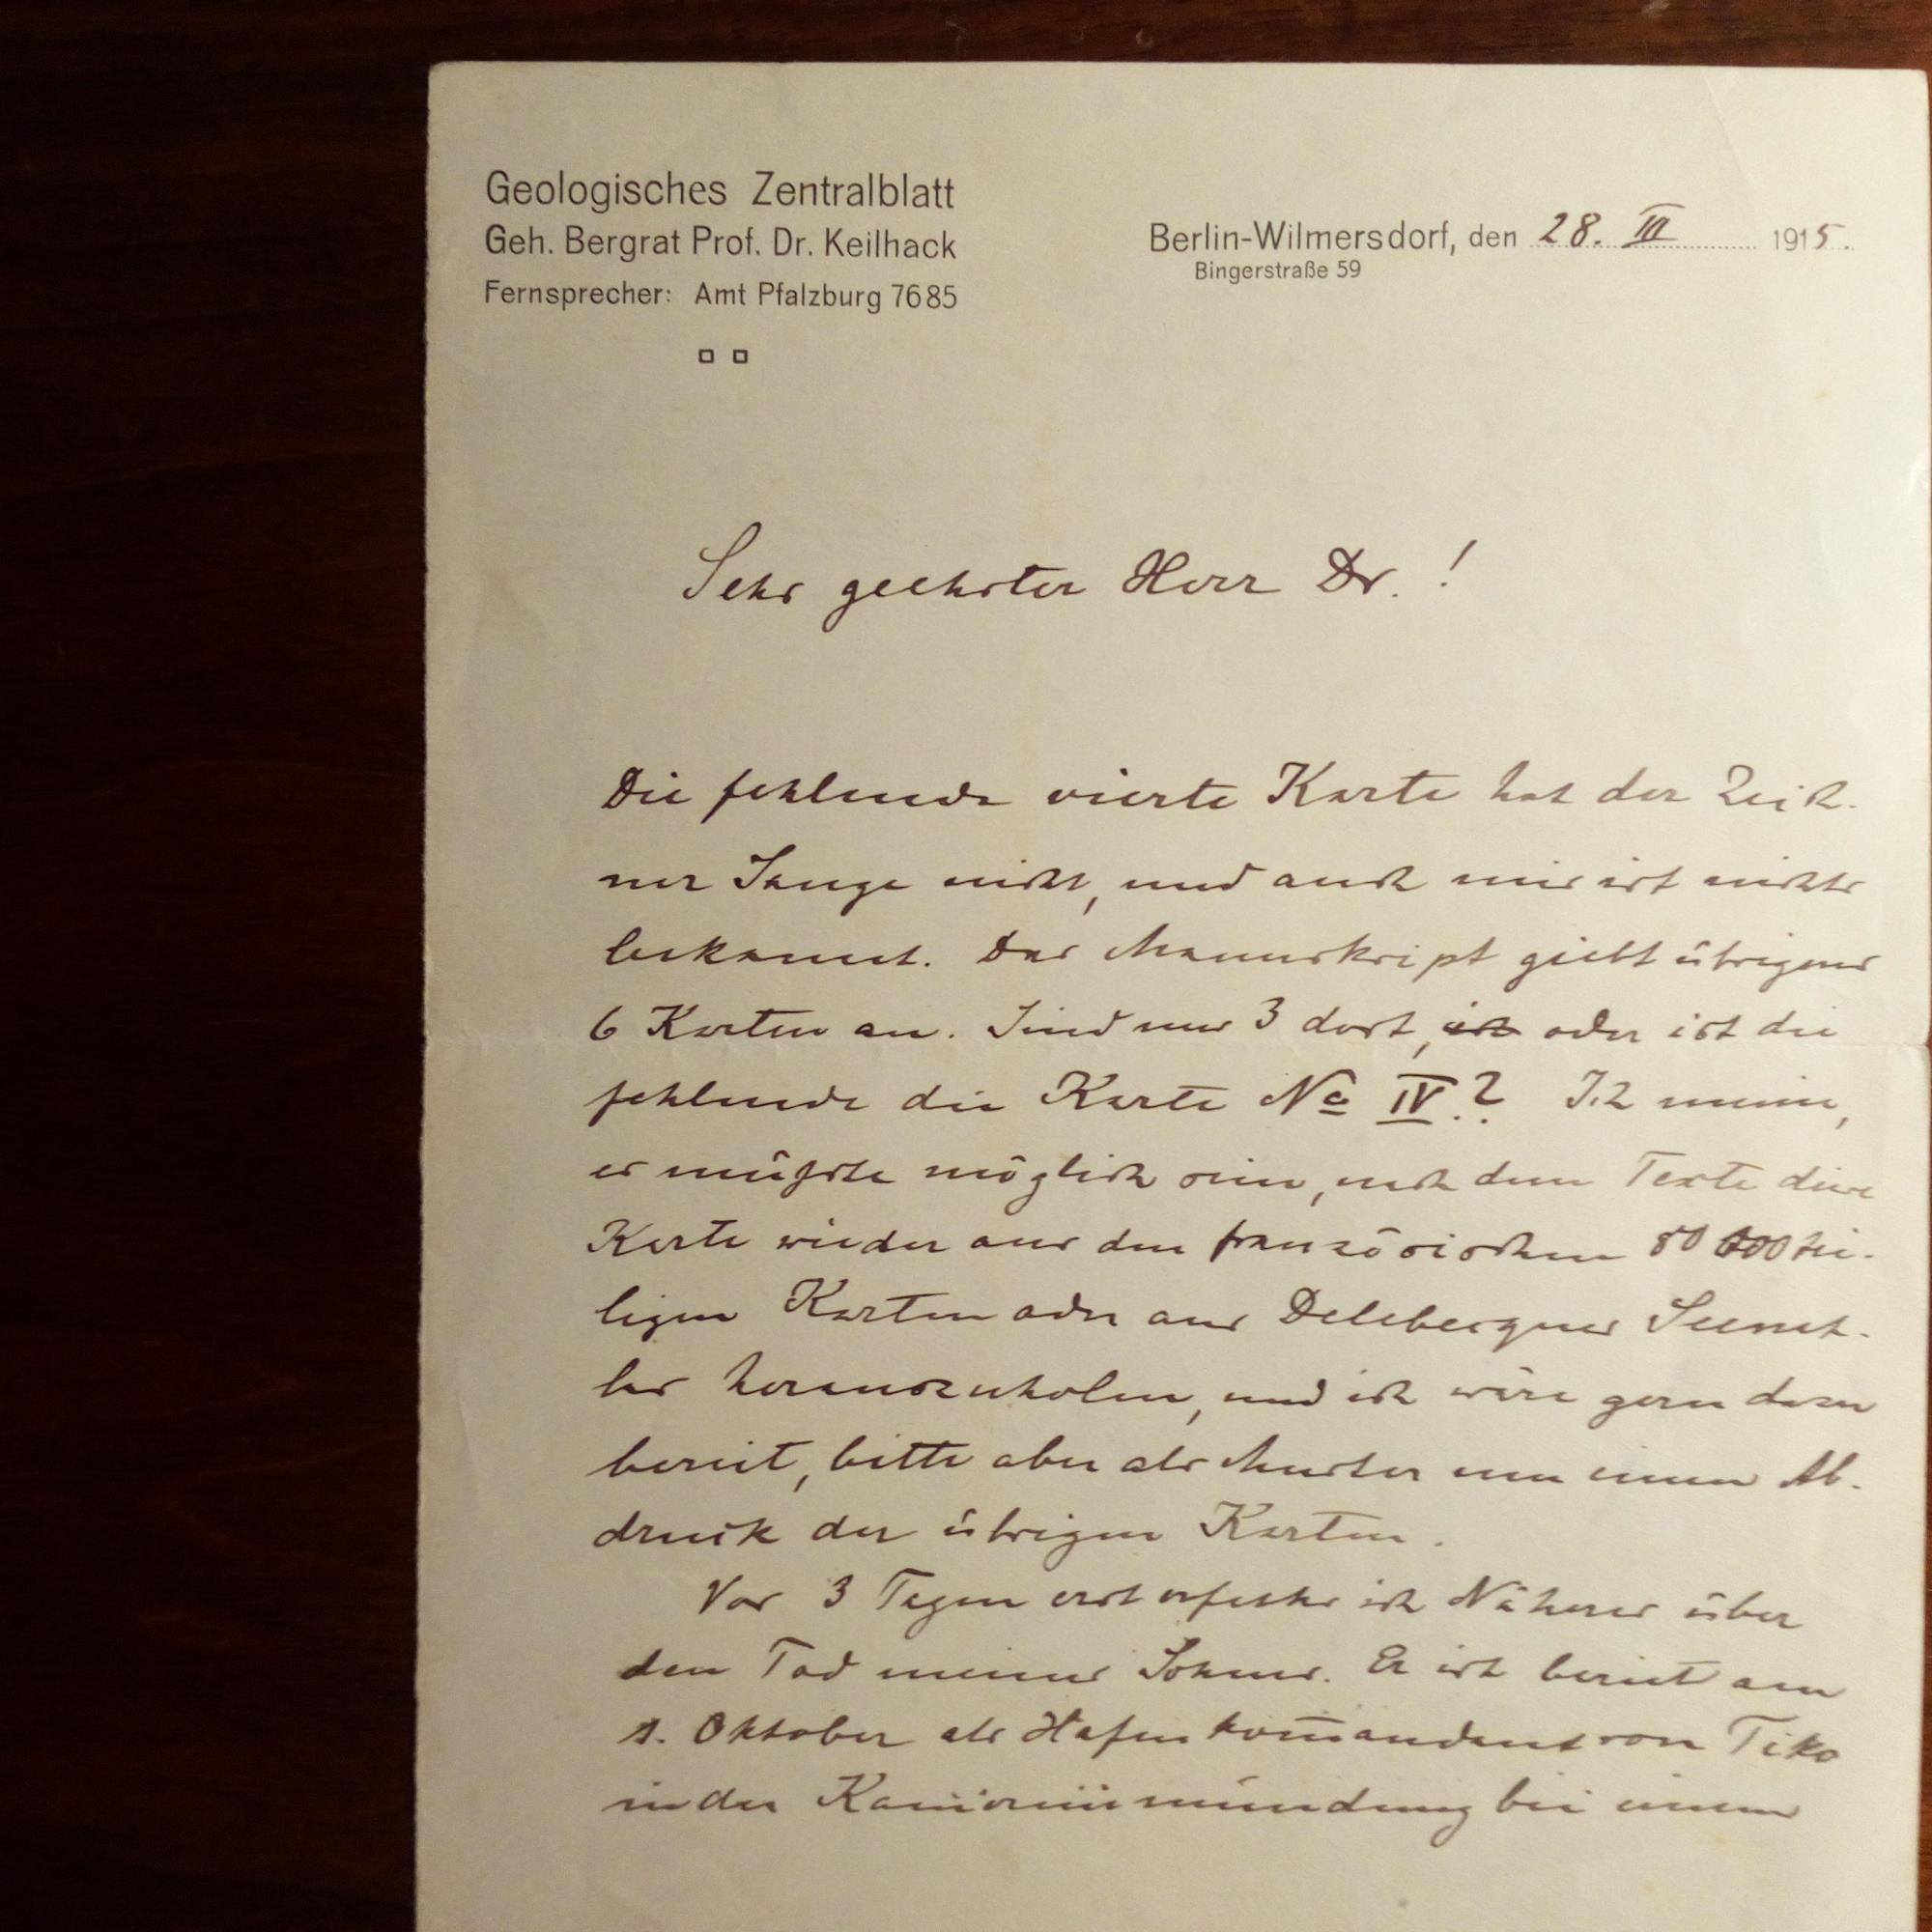 Geologisches Zentralblatt
Geh. Bergrat Prof. Dr. Keilhack
Fernsprecher: Amt Pfalzburg 7685
Berlin-Wilmersdorf, den 28. III 1915.
Bingerstraße 59
Sehr geehrter Herr Dr. !
Die fehlende vierte Karte hat der Zeich-
ner nicht, und auch mir ist nichts
bekannt. Das Manuskript giebt übrigens
6 Karten an. Sind nur 3 dort, ist oder ist die
fehlende die Karte No IV.? Ich meine,
es müsste möglich sein, nach dem Texte diese
Karte wieder aus den französischen 80 000 tei-
ligen Karten oder aus
herauszuholen, und ich wäre gern dazu
bereit, bitte aber als Muster um einen Ab-
druck der übrigen Karten.
Vor 3 Tagen erst erfuhr ich Näheres über
den Tod meines Sohnes. Er ist bereits am
1. Oktober als Hafenkom̄andant von Tiko
in der Kamerunmündung bei einem